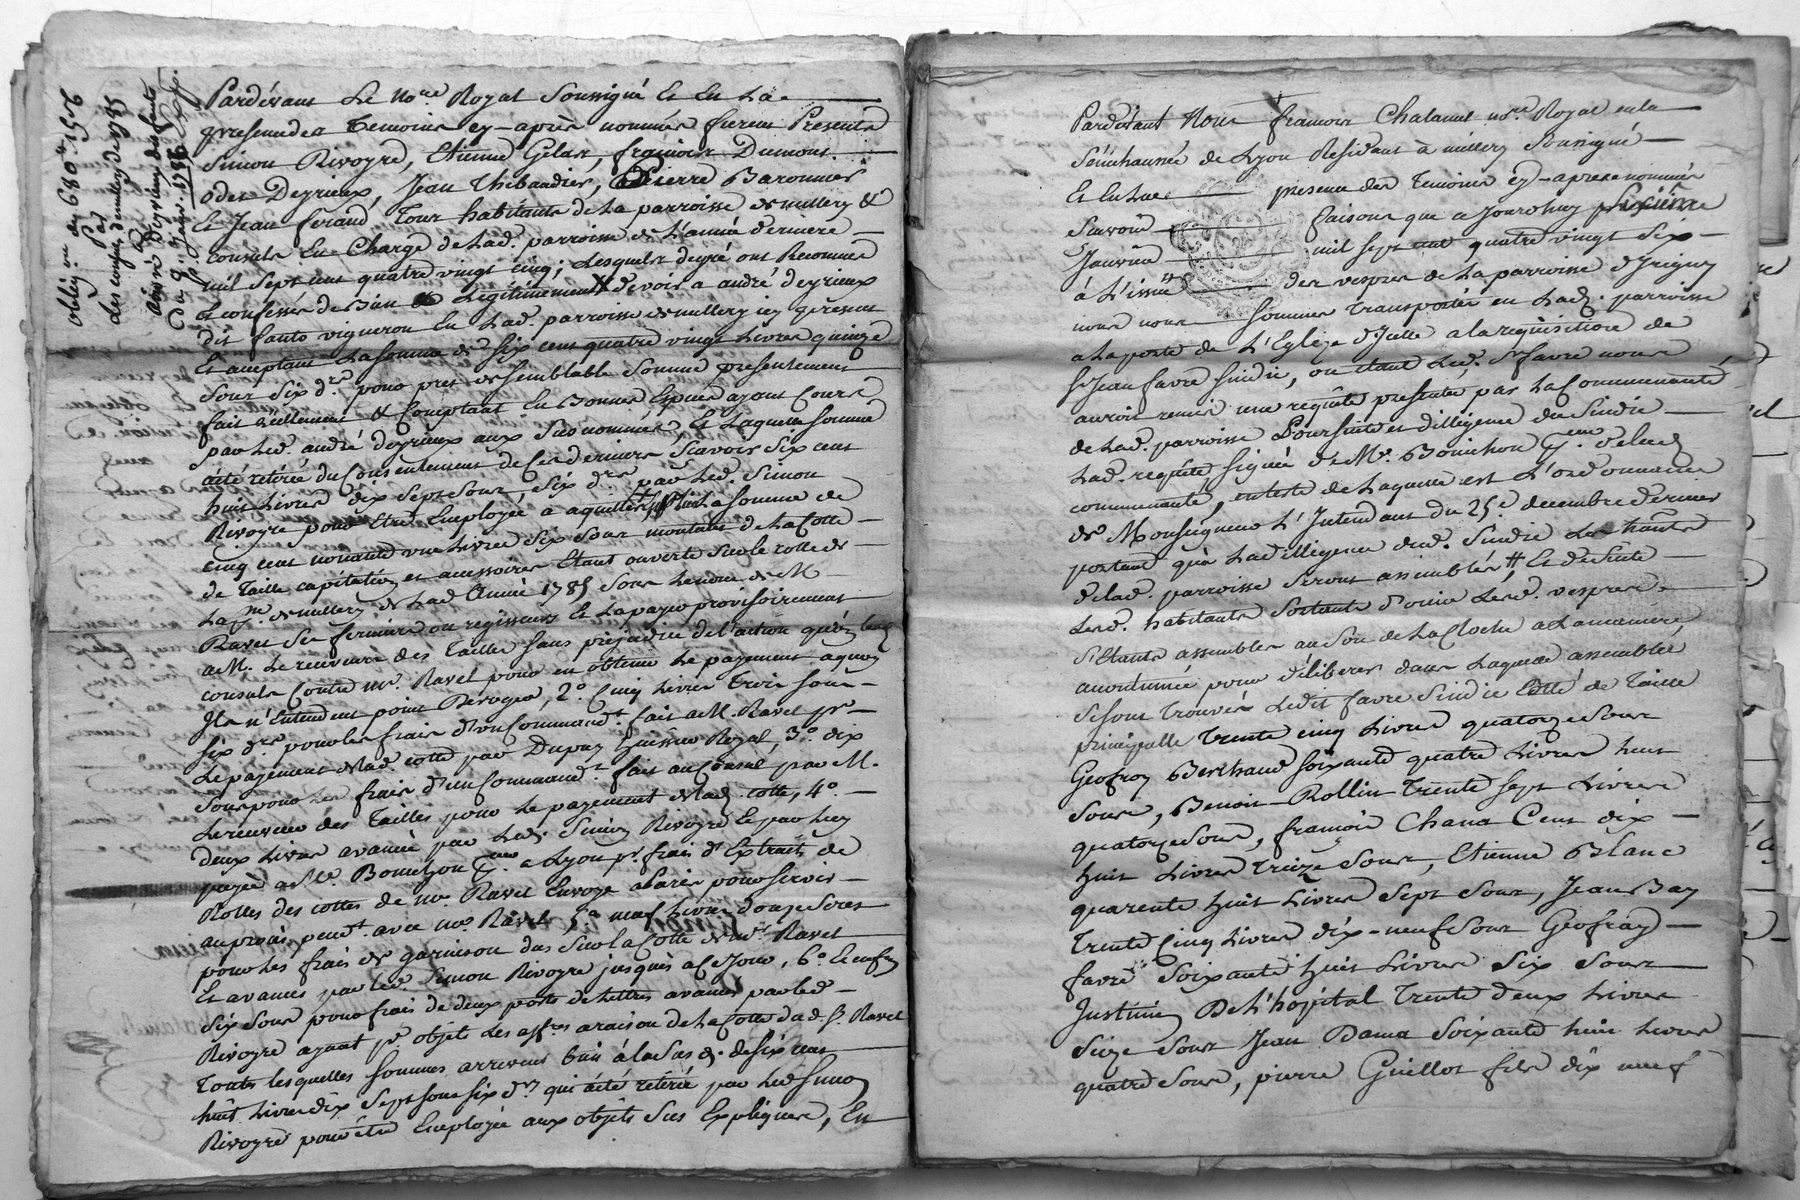 obligon de 680tt 15s 6d
par
des consuls de millery de 1785
à
andré deyrieux dit fanto
Du 9e Janvr. 1786
Pardevant Le No.re Royal Soussigné Et En La
presence des Temoins cy-après nommés furent Presents
Simon Rivoyre, Etienne Gelas, françois Dumont.
odet Deyrieux, Jean Thibaudier, Pierre Baronnier
Et Jean ferand, Tous habitants de La parroisse de millery &
Consuls En Charge de Lad. parroisse de L'année derniere
mil Sept cent quatre vingt cinq; Lesquels de gré ont Reconnu
Et confessés de Bien & Légitimement devoir a andré deyrieux
dit fanto vigneron En Lad. parroisse de millery icy present
Et acceptant La somme de Six cent quatre vingt Livres quinze
Sous Six d.rs pour pret de Semblable Somme presentement
fait réellement & Comptant En Bonnes Especes ayant Cours
par Led. andré deyrieux aux Susnommés, Et Laquelle Somme
a été retirée du Consentement de Ces derniers Scavoir Six cent
huit Livres dix Sept Sous, Six d.rs par Led. Simon
Rivoyre pour Etre Employée a aquitter La somme de
cinq cent nonante une Livres Six Sous montant de La Cotte
de Taille capitation et accessoires Etant ouverte Sur le rolle de
Lad. de millery de Lad. Année 1785 Sous Le nom de M.
Ravet Ses fermiers ou regisseurs Et La payer provisoirement
a M. Le receveur des Tailles sans préjudice de L'action qu'ont Lesd.
consuls Contre mr. Ravet pour en obtenir Le payement a quoy
Ils n'Entendent point Déroger, 2.o Cinq Livres Trois Sous
Six d.rs pour les frais d'un Commandt. fait a M. Ravet pr.
Le payement de Lad. cotte par Dupuy huissier Royal, 3.o dix
Sous pour Les frais d'un Commandt. fait au Consul par M.
Le receveur des Tailles pour Le payement de Lad. cotte, 4.o
deux Livres avancée par Led. Simon Rivoyre Et par Luy
payée a Me. Bonichon a Lyon pr. frais d'Extraits de
Rolles des cottes de mr. Ravet Envoyé a Paris pour Servir
au procès pendt. avec mr. Ravet, 5.o neuf Livres douze Sous
pour Les frais de garnison dus Sur La Cotte de mr. Ravet
Et avancés par Led. Simon Rivoyre jusqu'à ce Jour, 6.o Et enfin
Six Sous pour frais de deux ports de Lettres avancés par Led.
Rivoyre ayant pr. objets Les affres a raison de La Cotte dud. S. Ravet
Toutes lesquelles Sommes arrivent bien à La Susd. de Six cent
huit Livres dix Sept Sous Six d.rs qui a été retirée par Led Simon
Rivoyre pour être Employée aux objets Sus Expliqués, En
Pardevant Nous françois Chalamel nore. Royal en La
Sénéchaussée de Lyon Residant à millery Soussigné
Et En La presence des Temoins cy-apres nommés
Scavoir faisons que ce Jourdhuy
Janvier mil Sept cent quatre vingt Six
à L'issue des vespres de La parroisse d'Irigny
nous nous Sommes Transportés en Lad. parroisse
a La porte de L'Eglize d'Icelle a La requisition de
Sr Jean favre Sindic, ou etant Led. Sr. favre nous
auroit remis une requête presentée par La Communauté
de Lad. parroisse Poursuite et dilligence du Sindic
Lad. requête, Signée de Me. Bonichon de Lad.
communauté, en teste de Laquelle est L'ordonnance
de Monseigneur L'Intendant du 25.e decembre dernier
portant qu'à La dilligence dud. Sindic Les habitants
de Lad. parroisse Seront assemblés # Et de Suite
Lesd. habitants Sortants d'ouir Lesd. vespres
S'Etants assemblés au Son de La Cloche a La maniere
accoutumée pour déliberer dans Laquelle assemblée
Se Sont Trouvés Ledit favre Sindic Cotté de Taille
principalle Trente cinq Livres quatorze Sous
Geofroy Bertrand Soixante quatre Livres huit
Sous, Benoit Rollin Trente Sept Livres
quatorze Sous, françois Chana Cent dix
huit Livres Treize Sous, Etienne Blanc
quarente huit Livres Sept Sous, Jean Bay
Trente Cinq Livres dix-neuf Sous Geofray
favre Soixante huit Livres Six Sous
Justinien De L'hopital Trente deux Livres
Seize Sous Jean Dama Soixante huit Livres
quatre Sous, pierre Guillot fils dix neuf